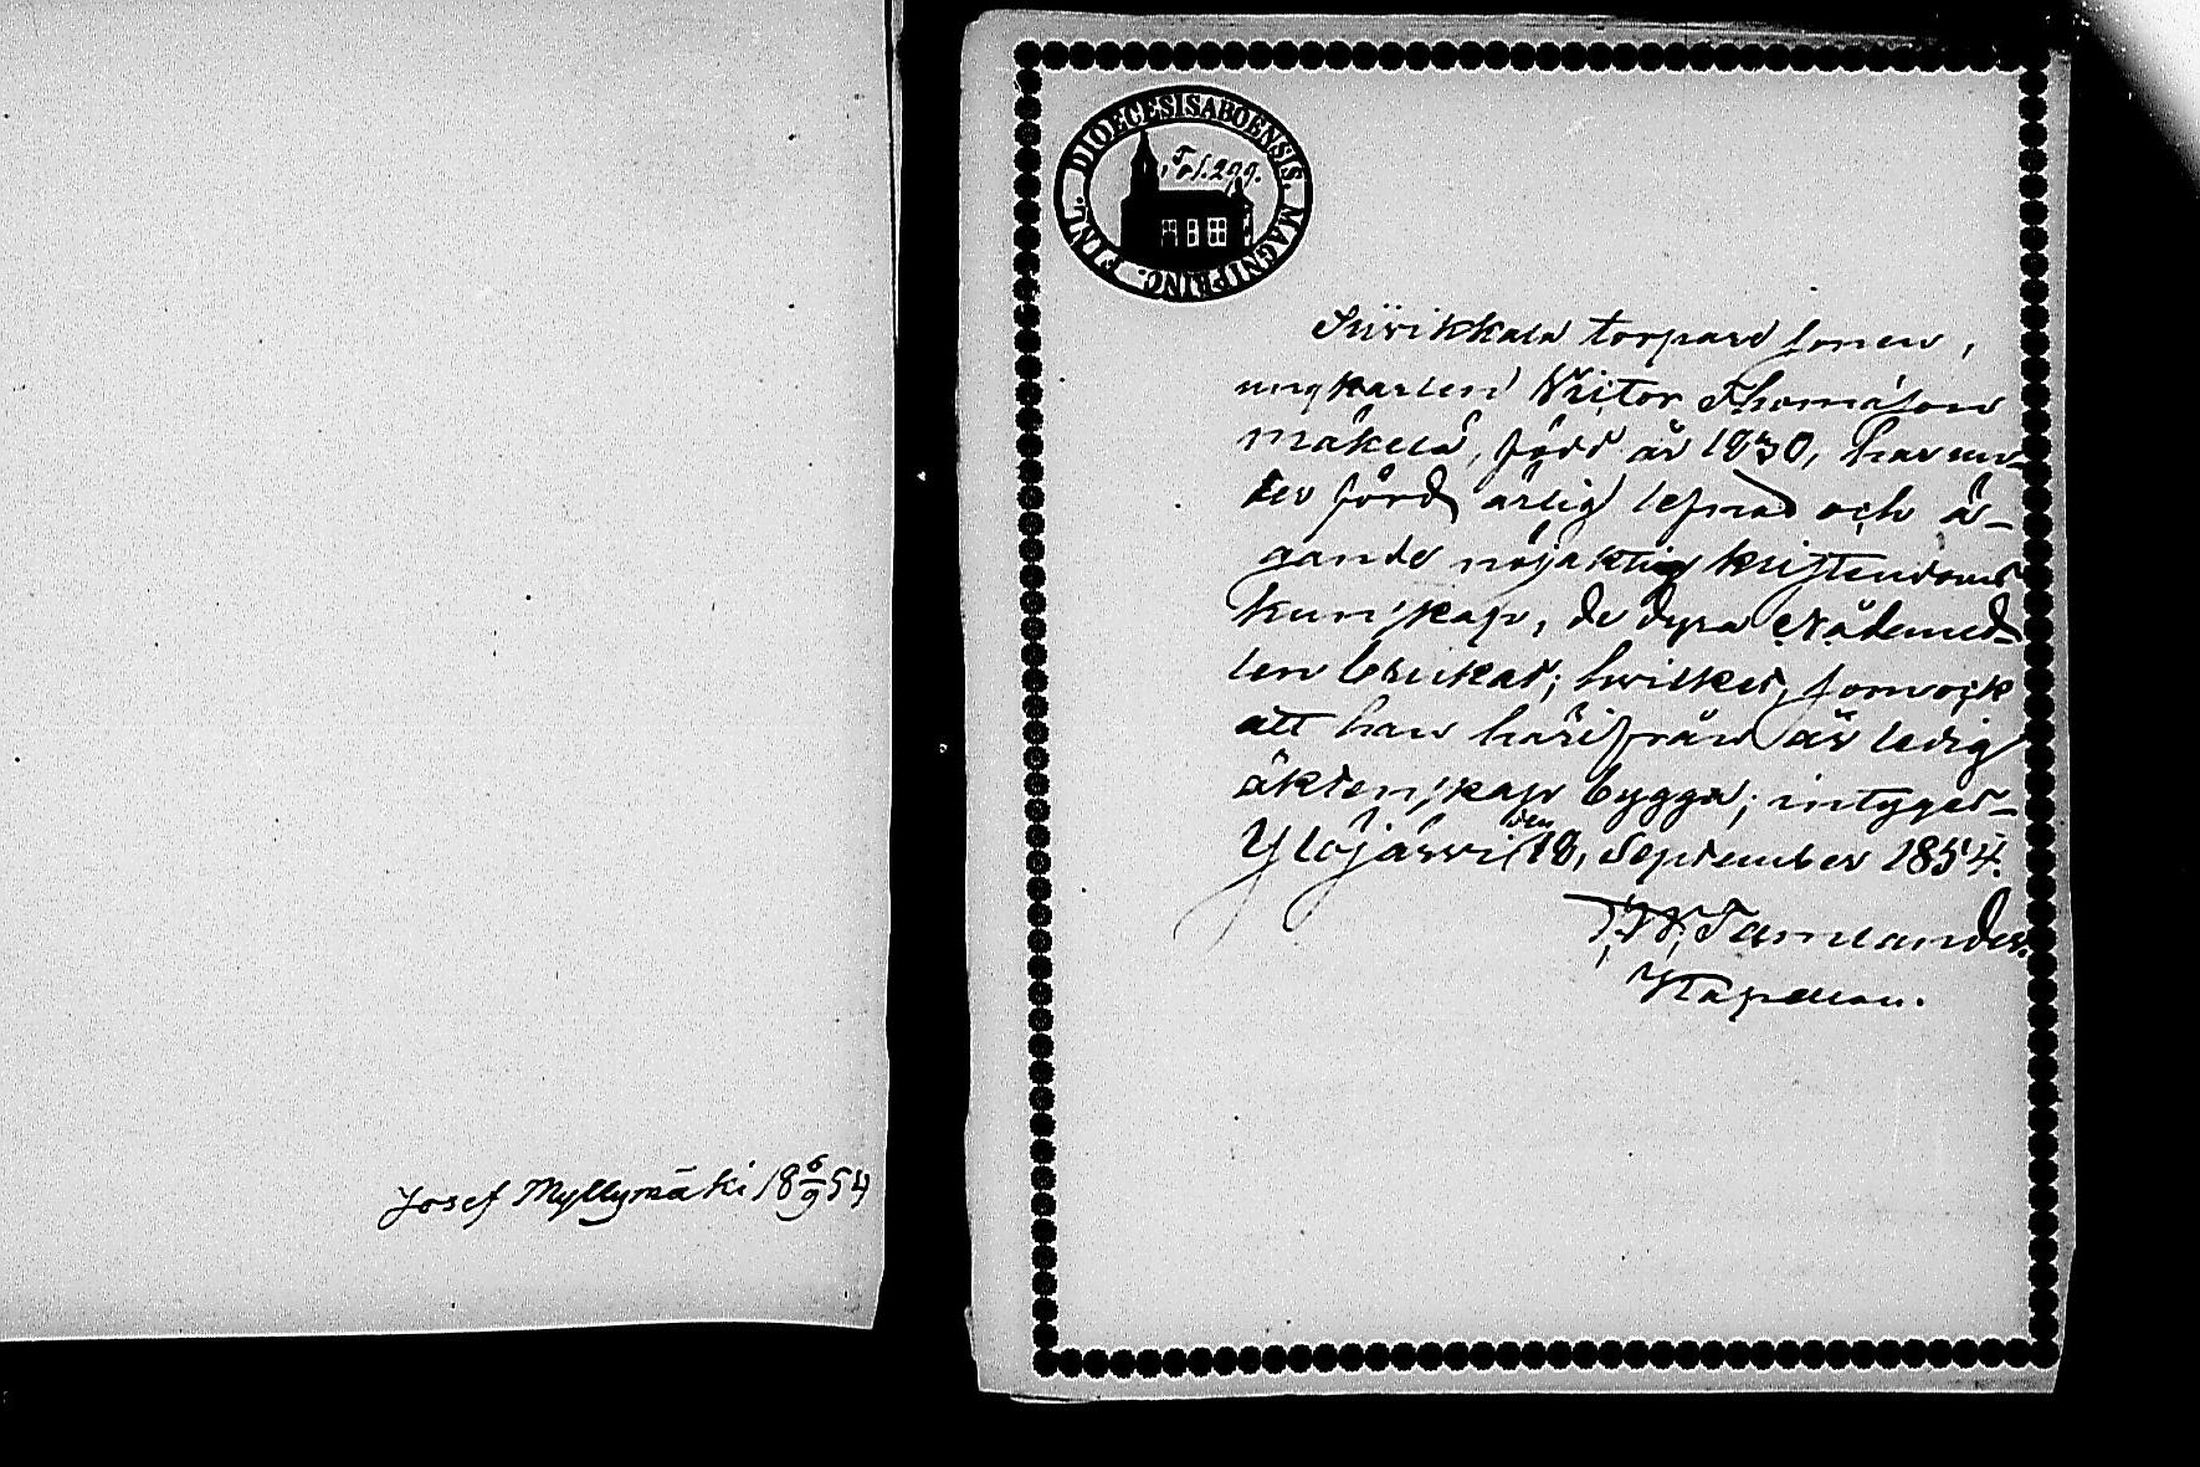 Josef Myllymäki 18 6/9 54
DIOECESIS ABOENSIS. MAGNI PRINC. FINL.
Fol. 299.
Siivikkala torpare sonen,
ungkarlen Victor Thomasson
Mäkelä, född år 1830, har un-
der förd ärlig lefnad och ä-
gande nöjaktig kristendoms
kunskap, de dyra Nådemed-
len brukat; hvilket, som ock
att han härifrån är ledig
äktenskap bygga; intygar_
Ylöjärvi den 18, September 1854.
Tamlander.
Kapellan.